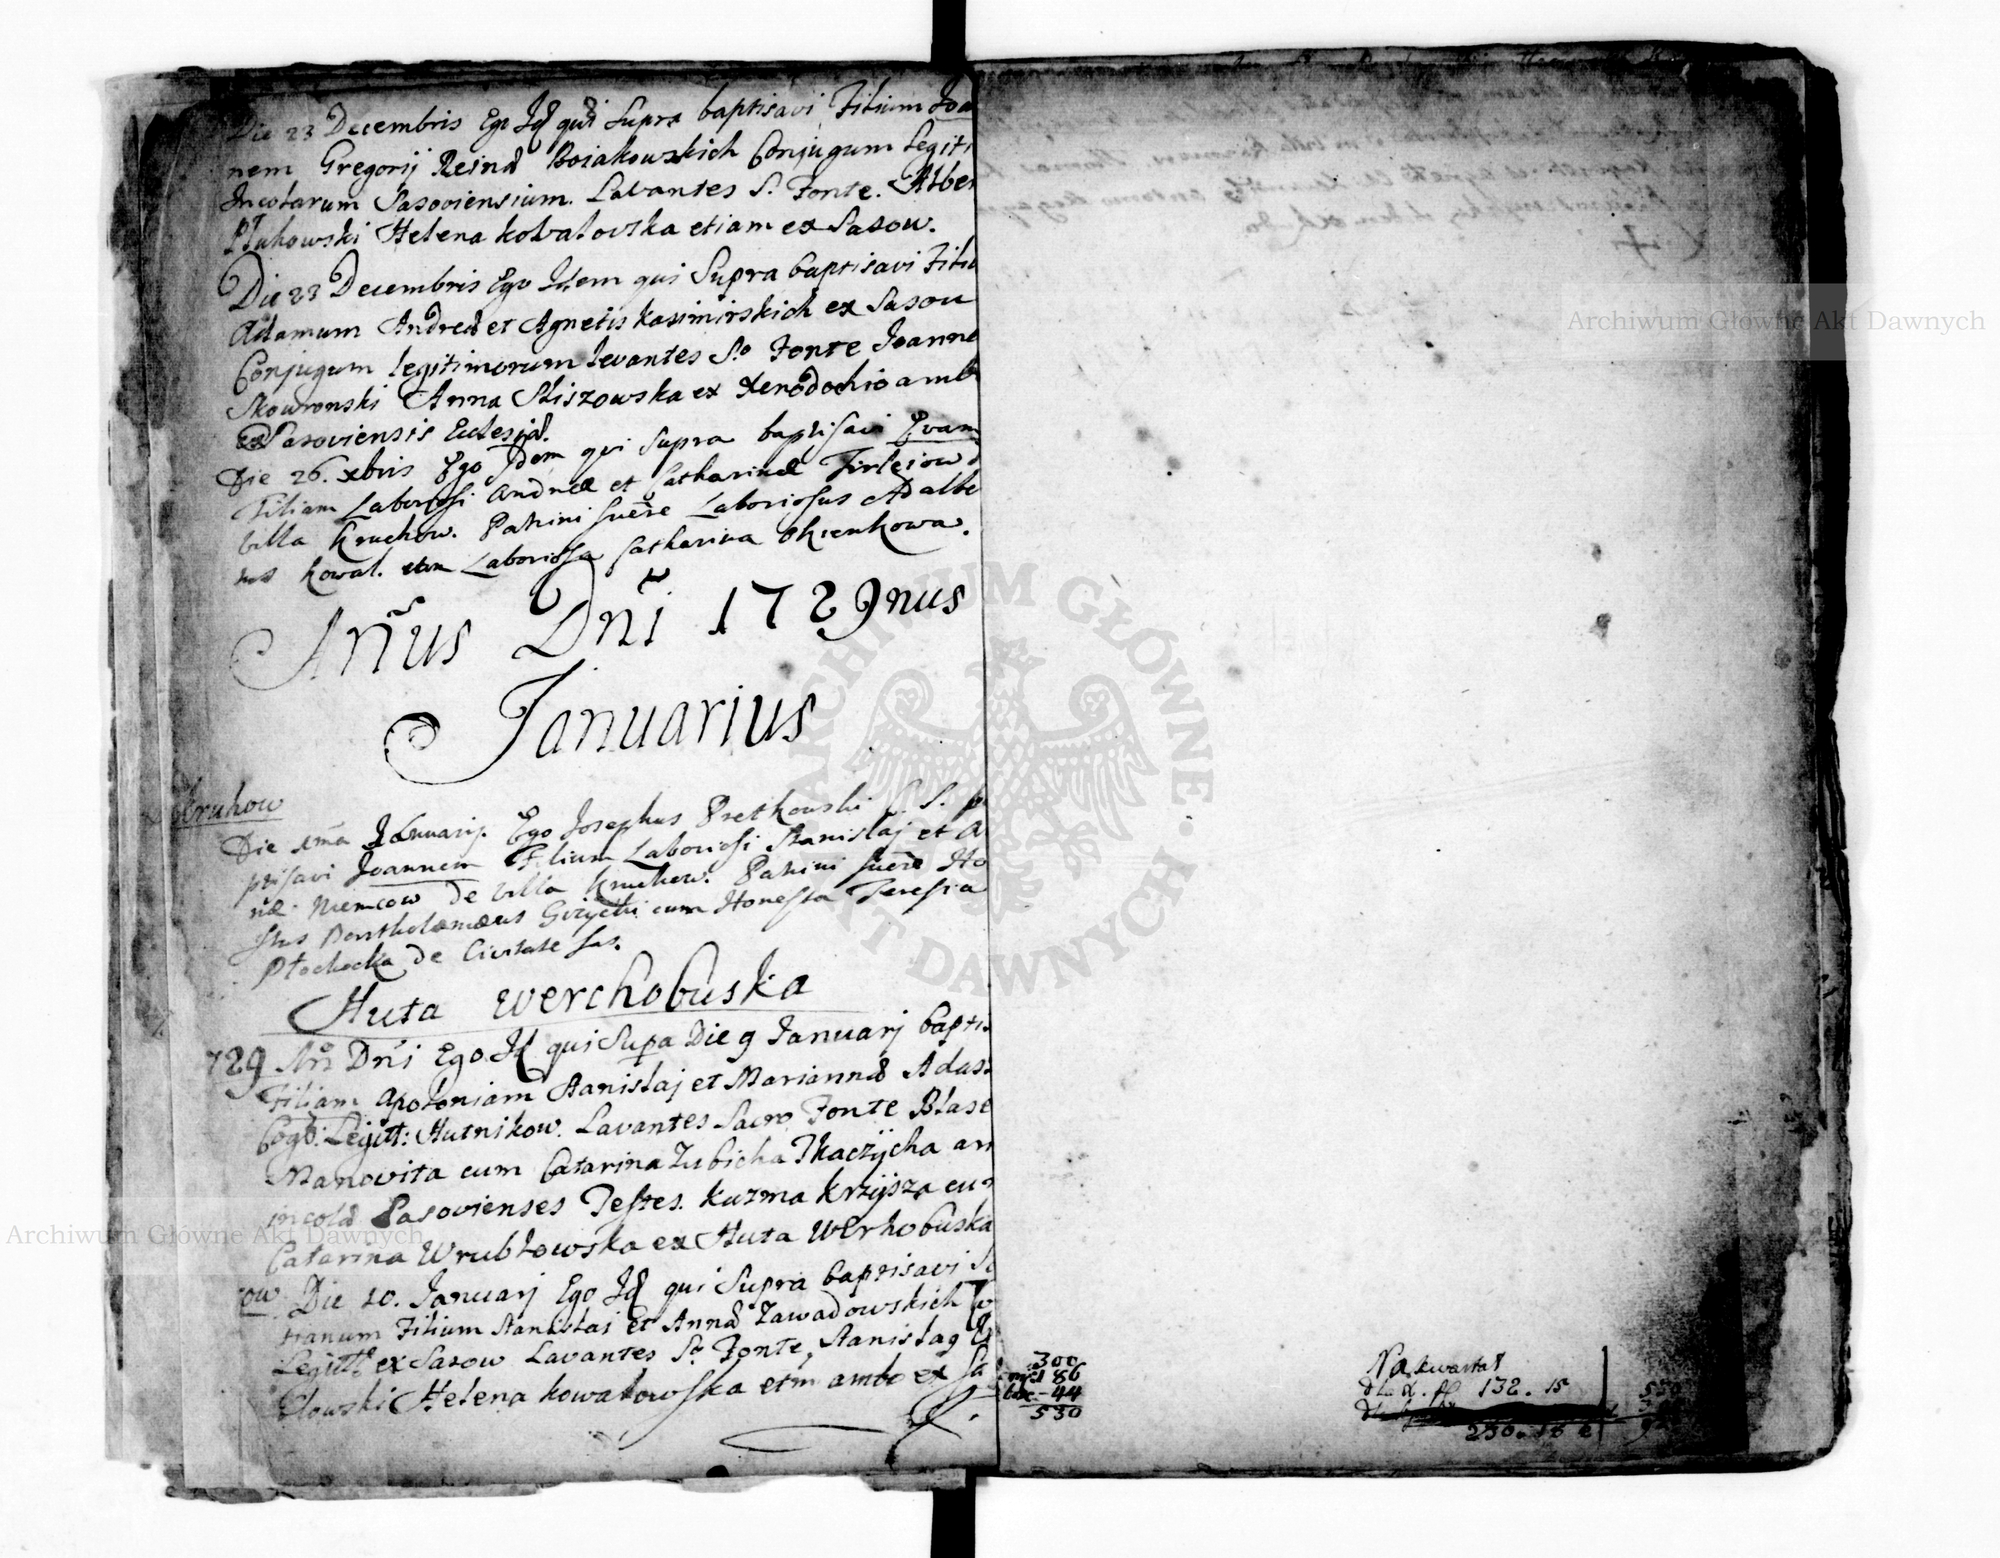 Die 23 Decembris Ego Id qui Supra baptisavi Filium Joa
nem Gregorij Boiakowskich Conjugum Legiti
Incolarum Sasoviensium. Lavantes S. Fonte. Alber
Helena kowalovska etiam ex Sasow.
Die 23 Decembris Ego Idem qui Supra baptisavi Filiu
Adamum Andreæ et Agnetis kasimirskich ex Sasou
Conjugum legitimorum levantes So Fonte Joanne
Skowronski Anna Sliszowska ex Xenodochio amb
Sasoviensis Eclesiæ.
Die 26. xbris Ego Idem qui Supra baptisavi Evam
Filiam Laboriosi Andreæ et Catharinæ Firlejow
villa Kruchow. Patrini fuere Laboriosus Adalbe
tus Kowal. etm Laboriosa Catharina Okienkowa.
Anus Dni 1729nus
Januarius
Kruhow
Die 1ma Januarij. Ego Josephus Pretkowski C. S.
ptisavi Joannem Filium Laboriosi Stanislaj et A
næ Niemcow De Villa Kruchow. Patrini fuere Ho
stus Bartholomæus Giżycki cum Honesta Teresia
Płochocka de Civitate Sas.
Huta werchobuska
729 An Dni Ego Id qui Supa Die 9 Januarj bapti
Filiam Apoloniam Stanislaj et Mariannæ Adas
Legitt: Hutnikow. Lavantes Sacro Fonte Blase
Manovita cum Catarina Zubicha Tkaczÿcha am
incolæ Sasovienses Testes. kuzma krzÿsza cum
Catarina Wrubłowska ex Huta Werhobuska
ow Die 10. Januarj Ego Id qui Supra baptisavi
tianum Filium Stanislai et Annæ Zawadowskich
Legitt ex Sasow Lavantes So Fonte, Stanislag
Helena kowalowska etm ambo ex Sa
300
86
44
530
Na kwartał
132. 15
530
230. 15